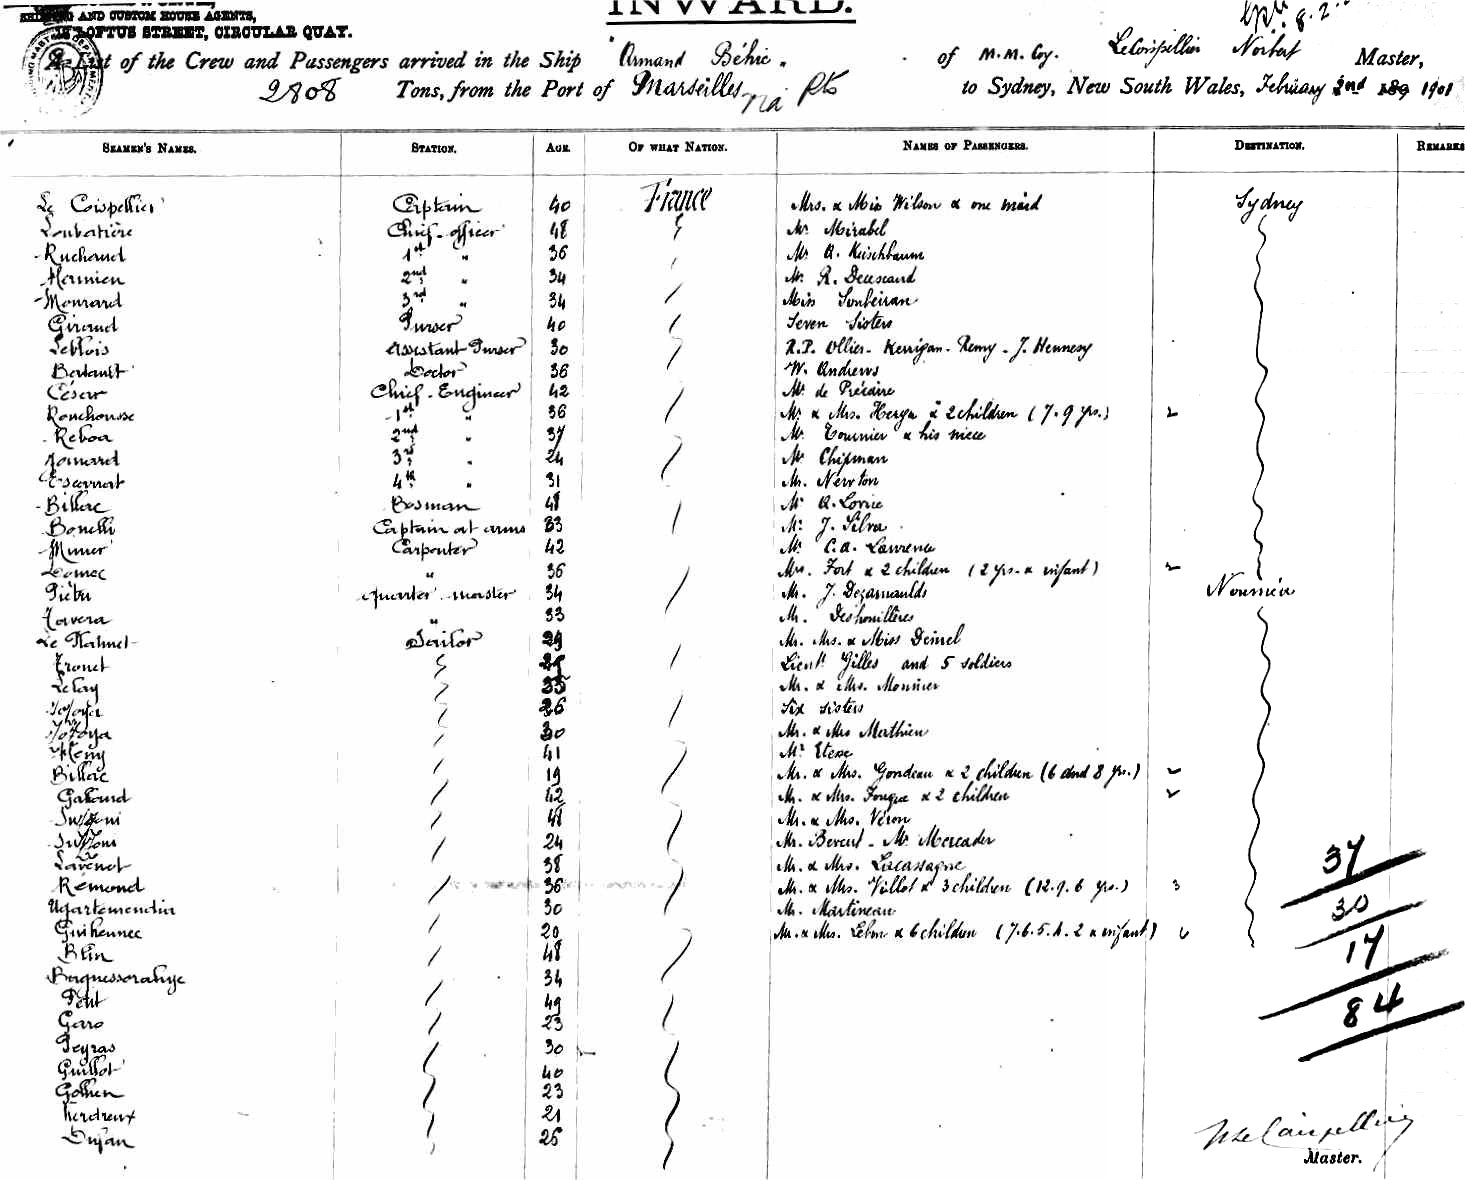 INWARD.
SHIPPING AND CUSTOM HOUSE AGENTS,
LOFTUS STREET, CIRCULAR QUAY.
8.2.
A List of the Crew and Passengers arrived in the Ship "Armand Béhic" of M.M. Coy. Norbert Master,
2808 Tons, from the Port of Marseilles via Pts to Sydney, New South Wales, February 2nd 189 1901
SEAMEN'S NAMES. STATION. AGE. OF WHAT NATION. NAMES OF PASSENGERS. DESTINATION. REMARKS
Le Coispellier Captain 40 France Mrs. & Miss Wilson & one maid Sydney
Loubatière Chief officer 48 Mr Mirabel
Ruchaud 1st " 36 Mr A. Kirschbaum
2nd " 34 Mr R.
3rd " 34 Miss Soubeiran
Giraud Purser 40 Seven Sisters
Leblois Assistant Purser 30 R.P. Ollier - Kerrigan - Remy - J. Hennesy
Bertault Doctor 36 W. Andrews
César Chief Engineer 42 Mr de
Ronchousse 1st " 36 Mr & Mrs. & 2 children (7. 9 yrs.) 2
Reboa 2nd " 37 Mr Tournier & his niece
3rd " 24 Mr Chipman
4th " 31 Mr. Newton
Billac Bosman 48 Mr A. Lorrie
Bonelli Captain at arms 33 Mr J. Silva
Carpenter 42 Mr C.A. Lawrence
" 36 Mrs. Fort & 2 children (2 yrs. & infant) 2
Piétri quarter master 34 Mr. J. Dezarnaulds Nouméa
Tavera " 33 Mr. Deshouillères
Sailor 29 Mr. Mrs. & Miss
Tronet Lieut. Gilles and 5 soldiers
Lelay 35 Mr. & Mrs. Monnier
26 Six Sisters
30 Mr. & Mrs Mathieu
41 Mr
Billac 19 Mr. & Mrs. Gondeau & 2 children (6 and 8 yrs.)
42 Mr. & Mrs. Fouque & 2 children
48 Mr. & Mrs. Véron
24 Mr. - Mr. Mercader
Lavenot 38 Mr. & Mrs. Lacassagne
Remond 36 Mr. & Mrs. Villot & 3 children (12. 9. 6 yrs.) 3
Ugartemendia 30 Mr. Martineau
Guihennec 20 Mr. & Mrs. & 6 children (7. 6. 5. 4. 2 & infant)
Blin 48
34
Petit 49
Garo 23
Peyras 30
Guillot 40
23
Verdreux 21
Dujan 26
37
30
17
84
Master.